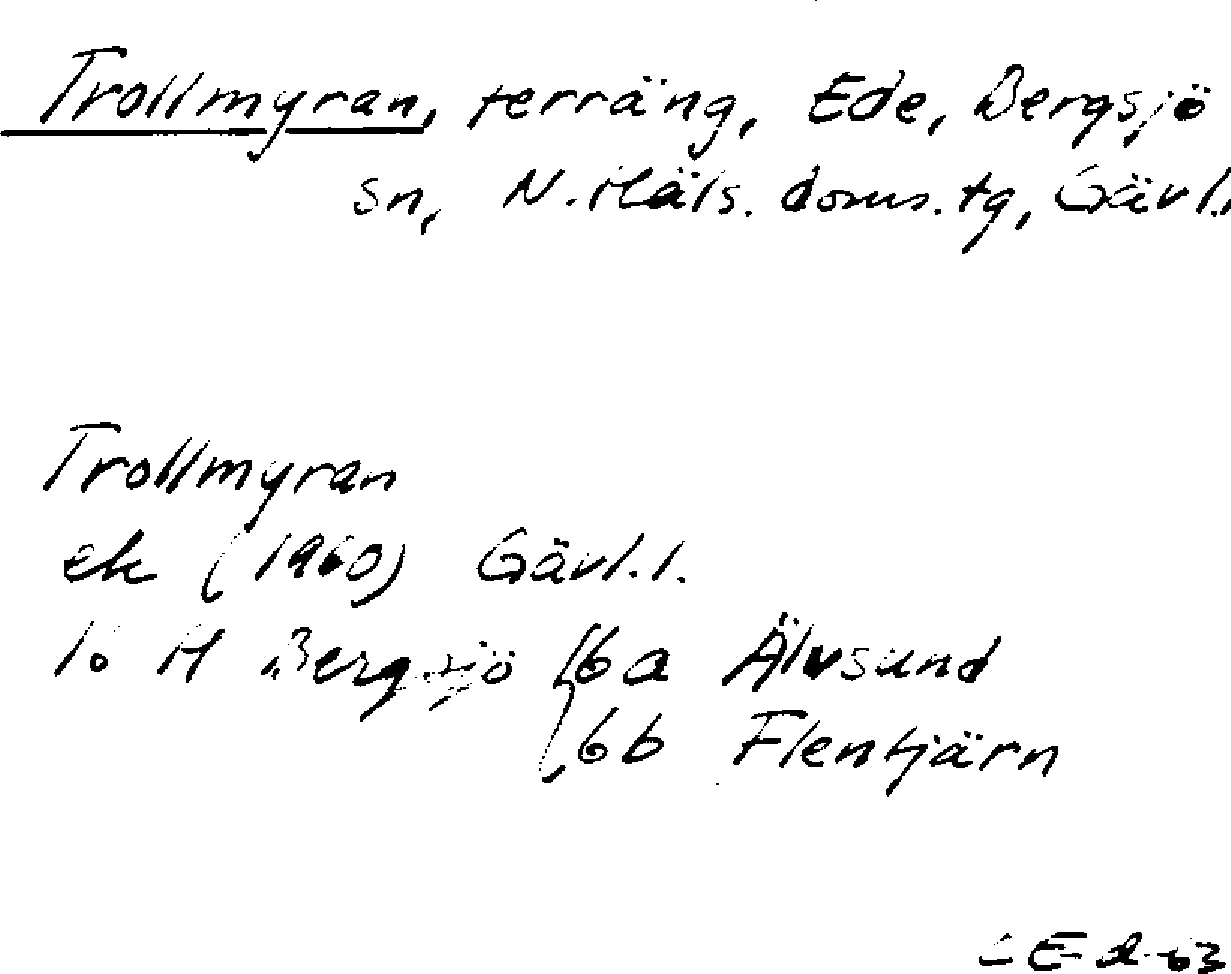 Trollmyran, terräng, Ede, Bergsjö
sn, N. Häls. doms. tg, Gävl.l
Trollmyran
ek (1960) Gävl.l.
16 H Bergsjö 6a Älvsund
6b Flentjärn